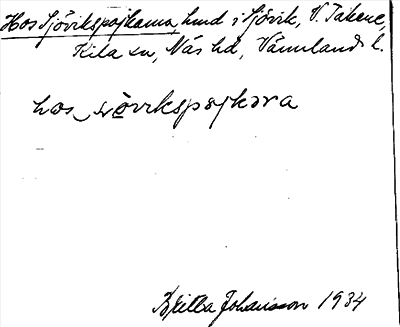 Hos Sjövikspojkarna, hmd i Sjövik, V. Takene,
Kila sn, Näs hd, Värmlands l.
hos sjövikspojkara
Britta Johansson 1934